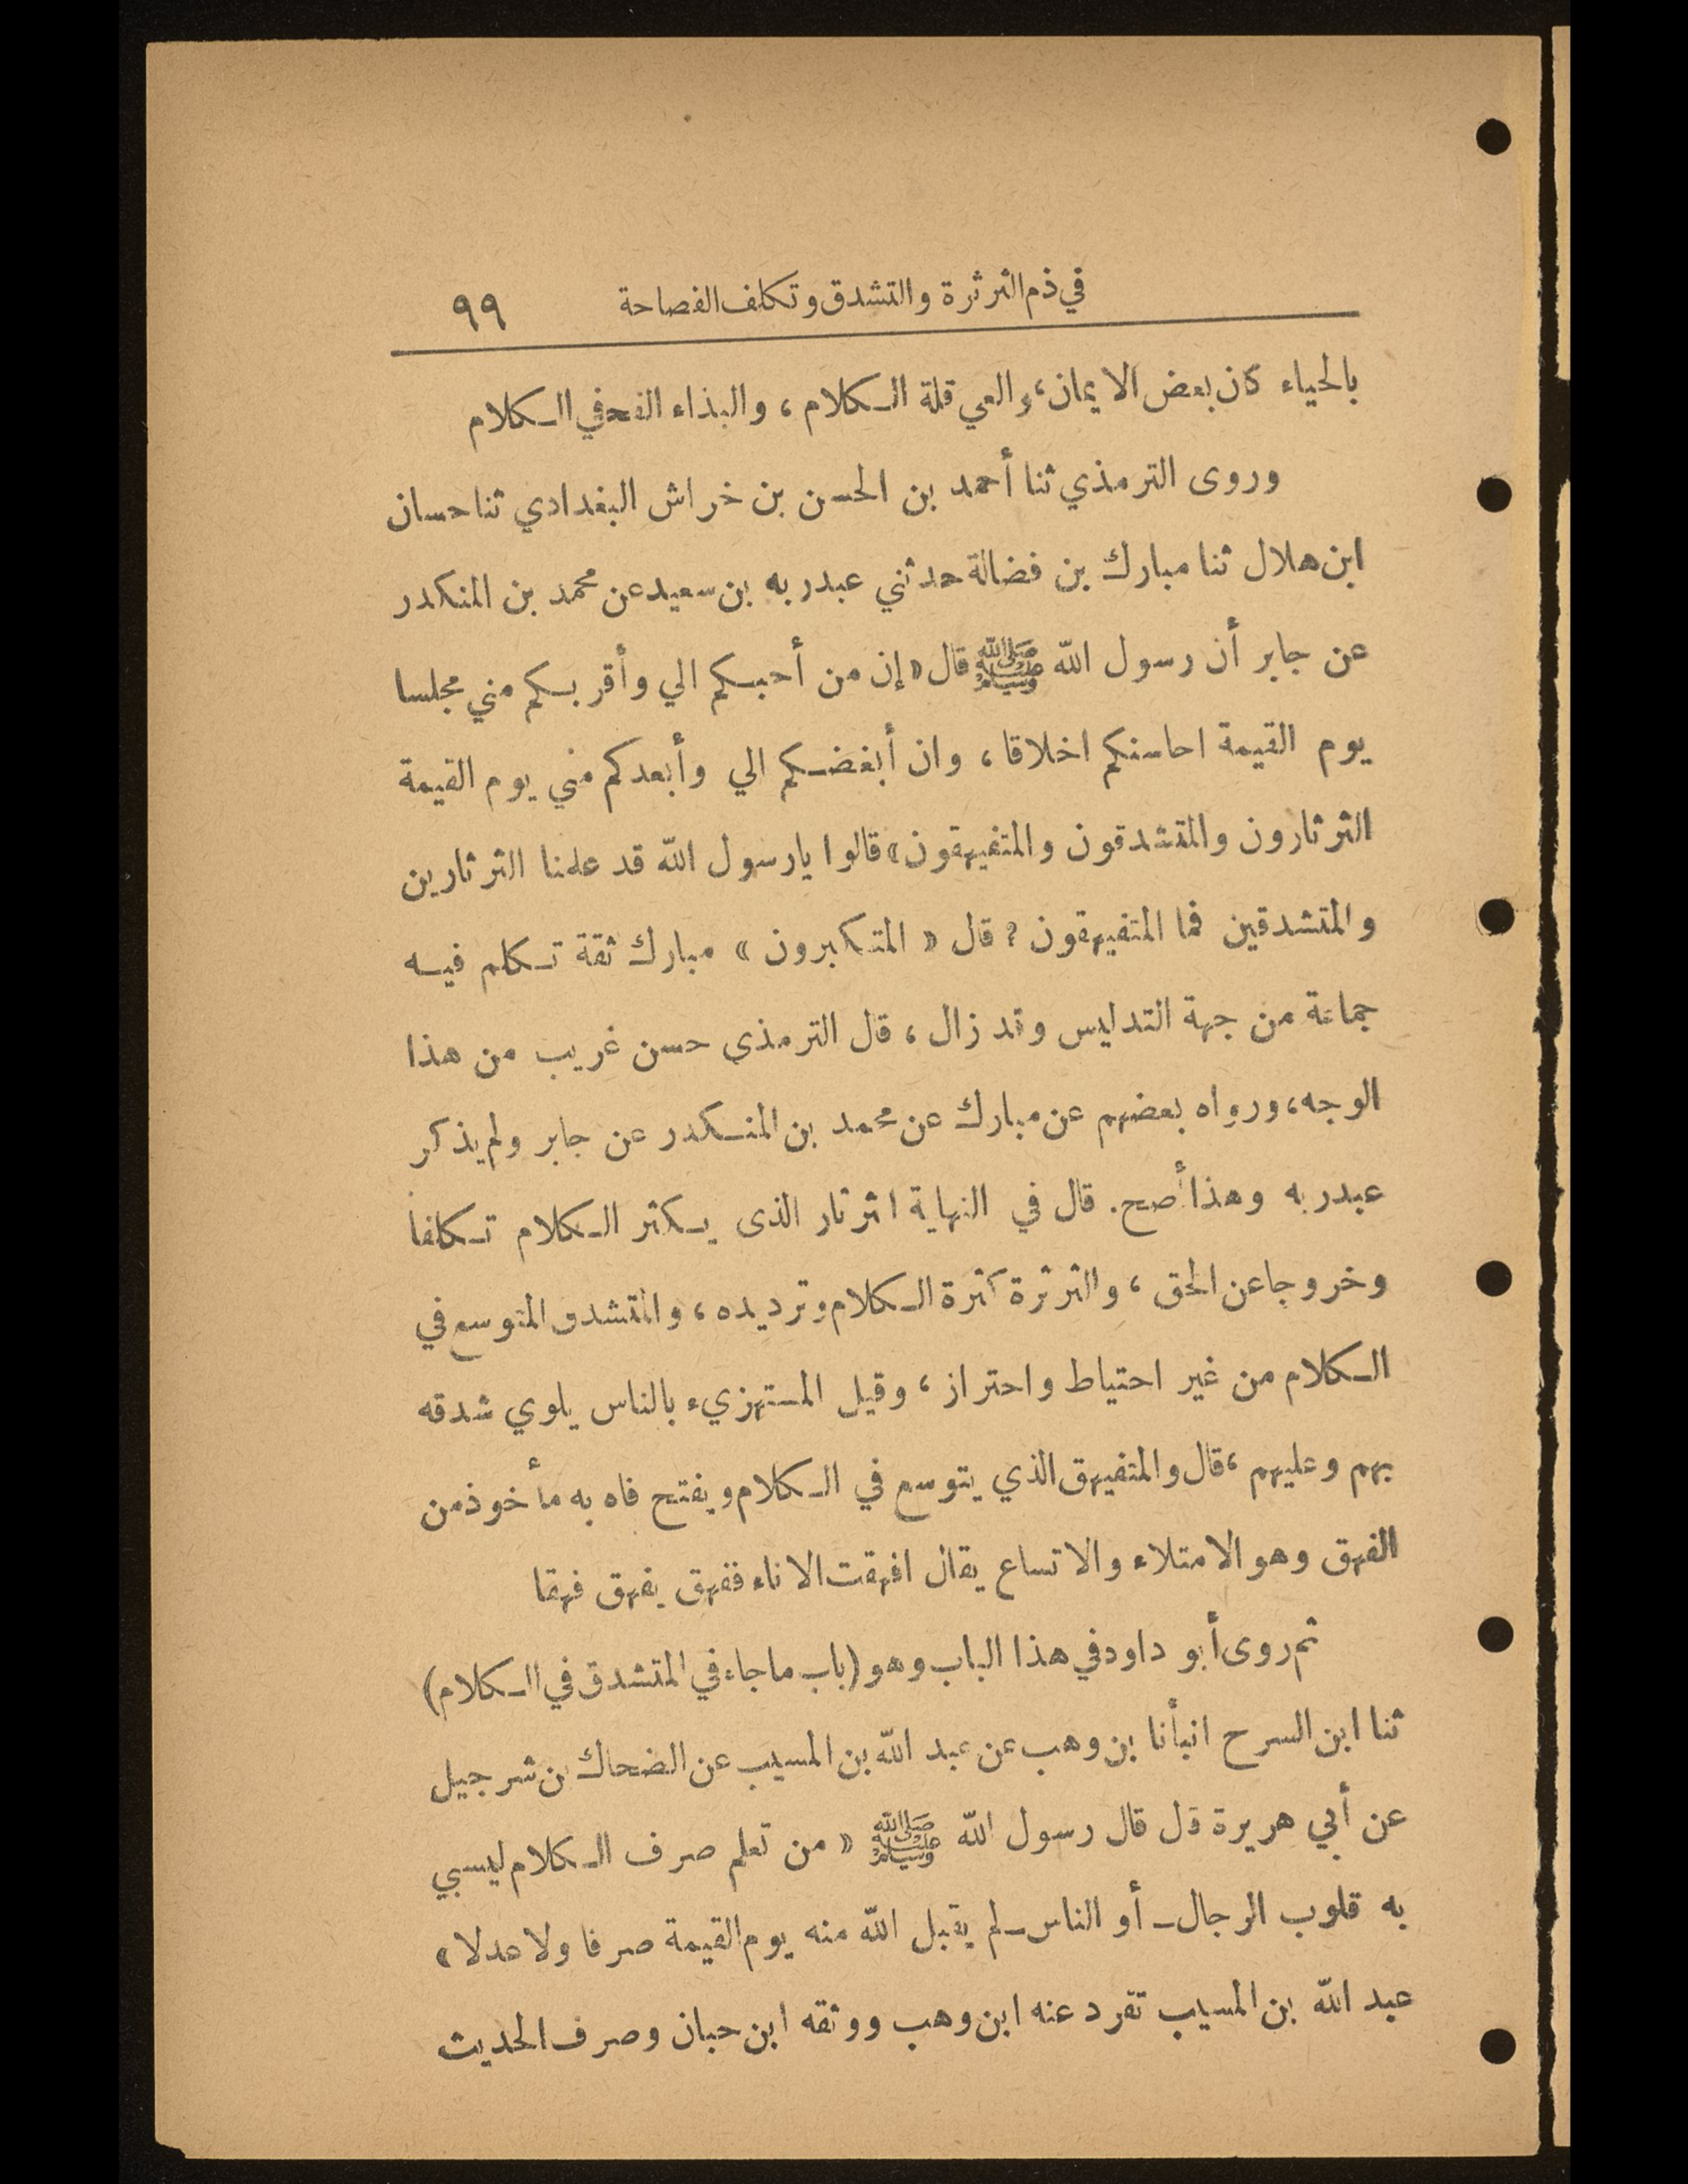 في ذم الثرثرة والتشدق وتكلف الفصاحة ٩٩
بالحياء كان بعض الايمان، والعي قلة الكلام، والبذاء الفحفي الكلام
وروى الترمذي ثنا أحمد بن الحسن بن خراش البغدادي ثنا حسان
ابن هلال ثنا مبارك بن فضالة حدثني عبدربه بن سعيد عن محمد بن المنكدر
عن جابر أن رسول الله ﷺ قال «إن من أحبكم الي وأقربكم مني مجلسا
يوم القيمة احاسنكم اخلاقا، وان أبغضكم الي وأبعدكم مني يوم القيمة
الثرثارون والمتشدقون والمتفيهقون» قالوا يارسول الله قد علمنا الثرثارين
والمتشدقين فما المتفيهقون؟ قال «المتكبرون» مبارك ثقة تكلم فيه
جماعة من جهة التدليس وقد زال، قال الترمذى حسن غريب من هذا
الوجه، ورواه بعضهم عن مبارك عن محمد بن المنكدر عن جابر ولم يذكر
عبدربه وهذا أصح. قال في النهاية اثرثار الذى يكثر الكلام تكلفا
وخروجا عن الحق، والثرثرة كثرة الكلام وترديده، والمتشدق المتوسع في
الكلام من غير احتياط واحتراز، وقيل المستهزيء بالناس يلوي شدقه
بهم وعليهم، قال والمتفيهق الذي يتوسع في الكلام ويفتح فاه به مأخوذ من
الفهق وهو الامتلاء والاتساع يقال افهقت الاناء ففهق يفهق فهقا
ثم روى أبو داود في هذا الباب وهو (باب ماجاء في المتشدق في الكلام)
ثنا ابن السرح انبأنا بن وهب عن عبد الله بن المسيب عن الضحاك بن شرجيل
عن أبي هريرة قل قال رسول الله ﷺ «من تعلم صرف الكلام ليسبي
به قلوب الرجال ـ أو الناس ـ لم يقبل الله منه يوم القيمة صرفا ولا عدلا»
عبد الله بن المسيب تفرد عنه ابن وهب ووثقه ابن حبان وصرف الحديث